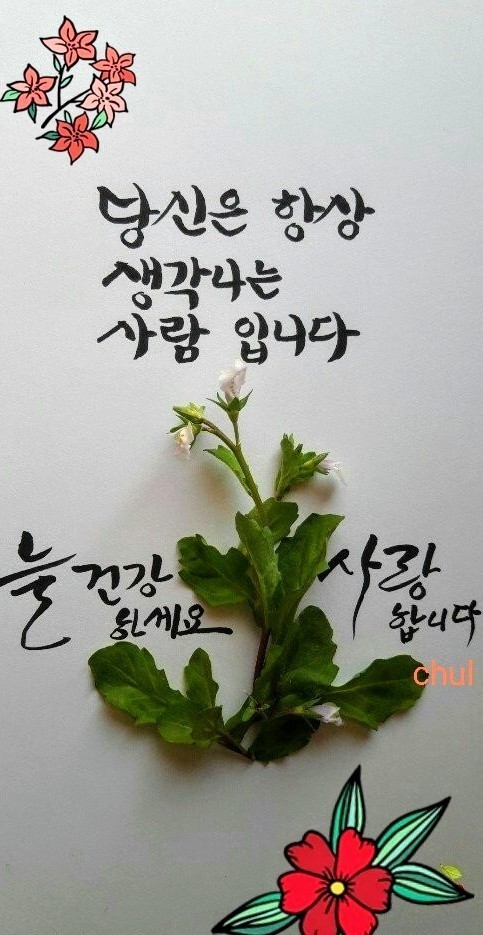 당신은 항상
생각나는
사람 입니다
늘 건강
하세요
사랑
합니다
chul